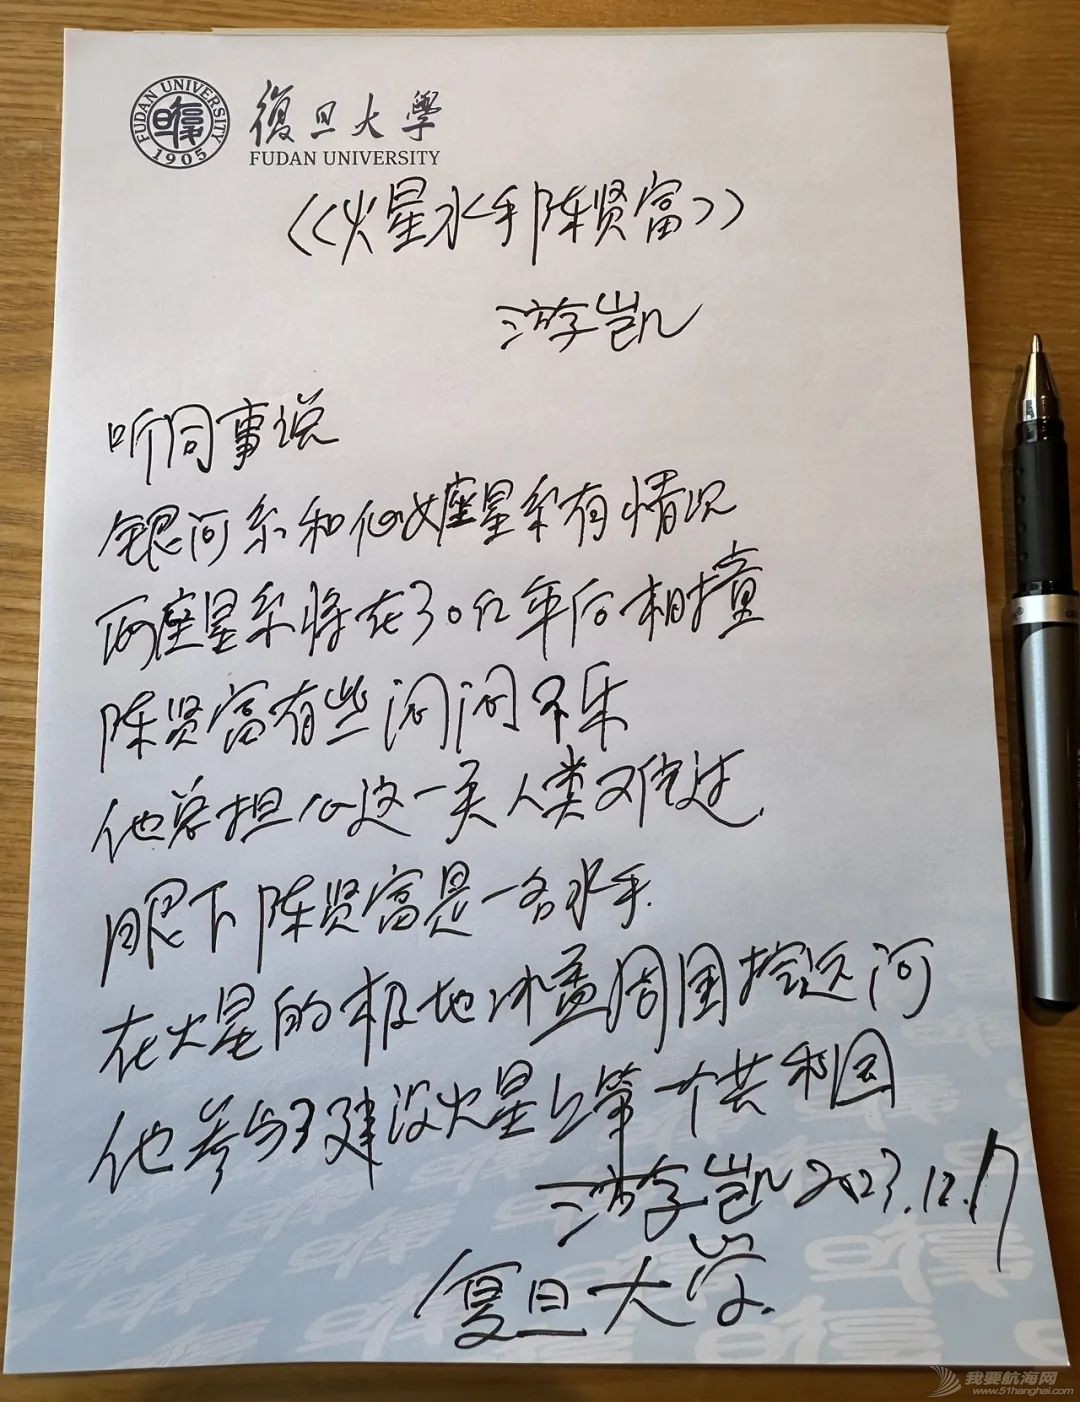 FUDAN UNIVERSITY
1905
復旦大學
FUDAN UNIVERSITY
《火星水手陈贤富》
游学凯
听同事说
银河系和仙女座星系有情况
两座星系将在30亿年后相撞
陈贤富有些闷闷不乐
他总担心这一类人类又难过
眼下陈贤富是一名水手.
在火星的极地冰盖周围挖运河
他参与了建设火星上第一个共和国
游学凯 2023.12.17
复旦大学.
我要航海网
www.51hanghai.com